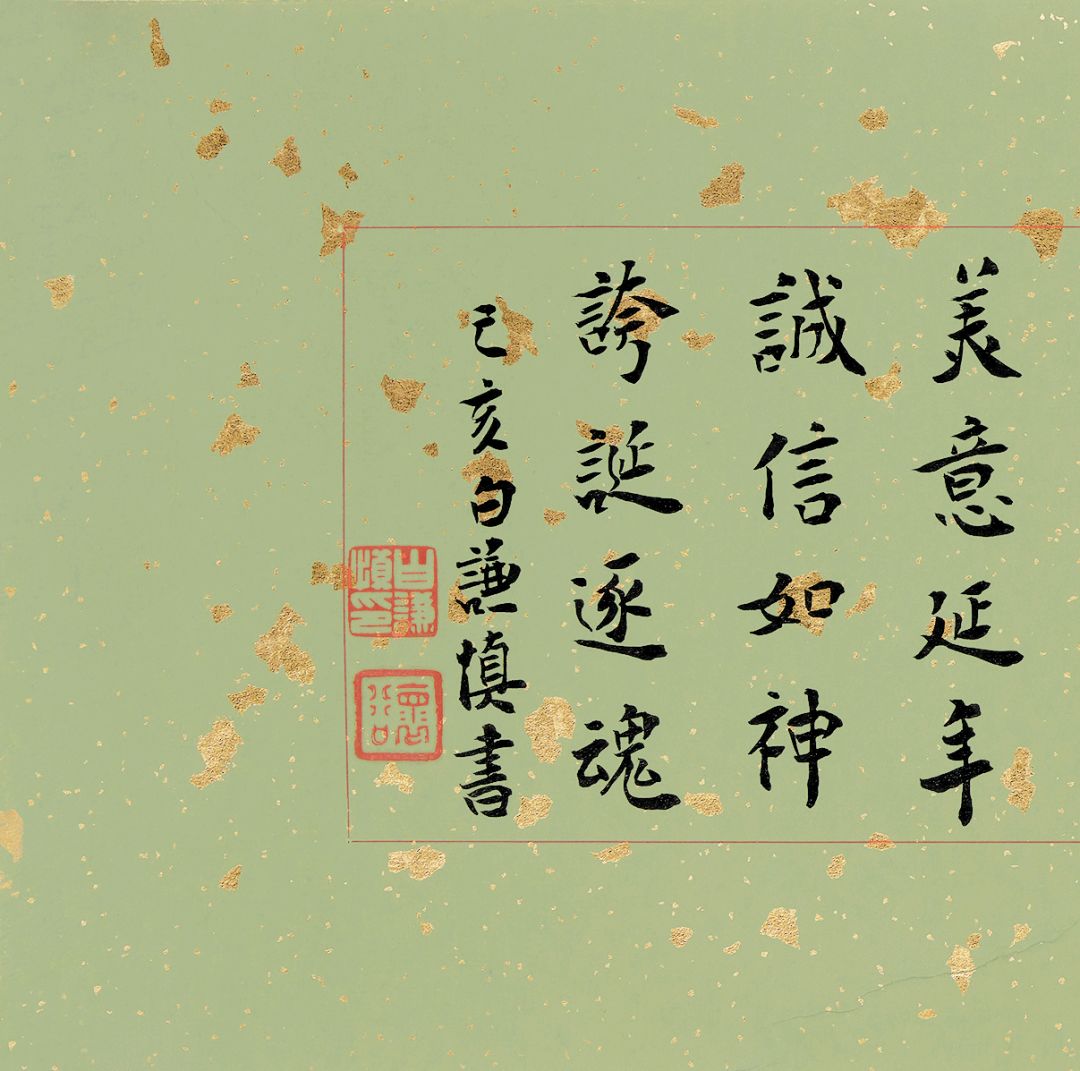 美意延年
誠信如神
誇誕逐魂
己亥白謙慎書
白謙慎印